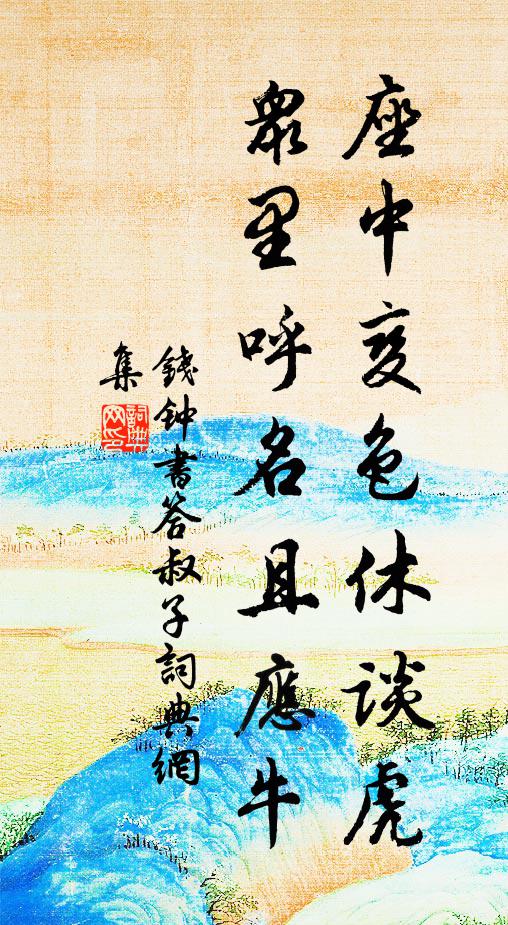 座中变色休谈虎
眾里呼名且應牛
錢钟書答叔子詞典網
集
詞典
网印